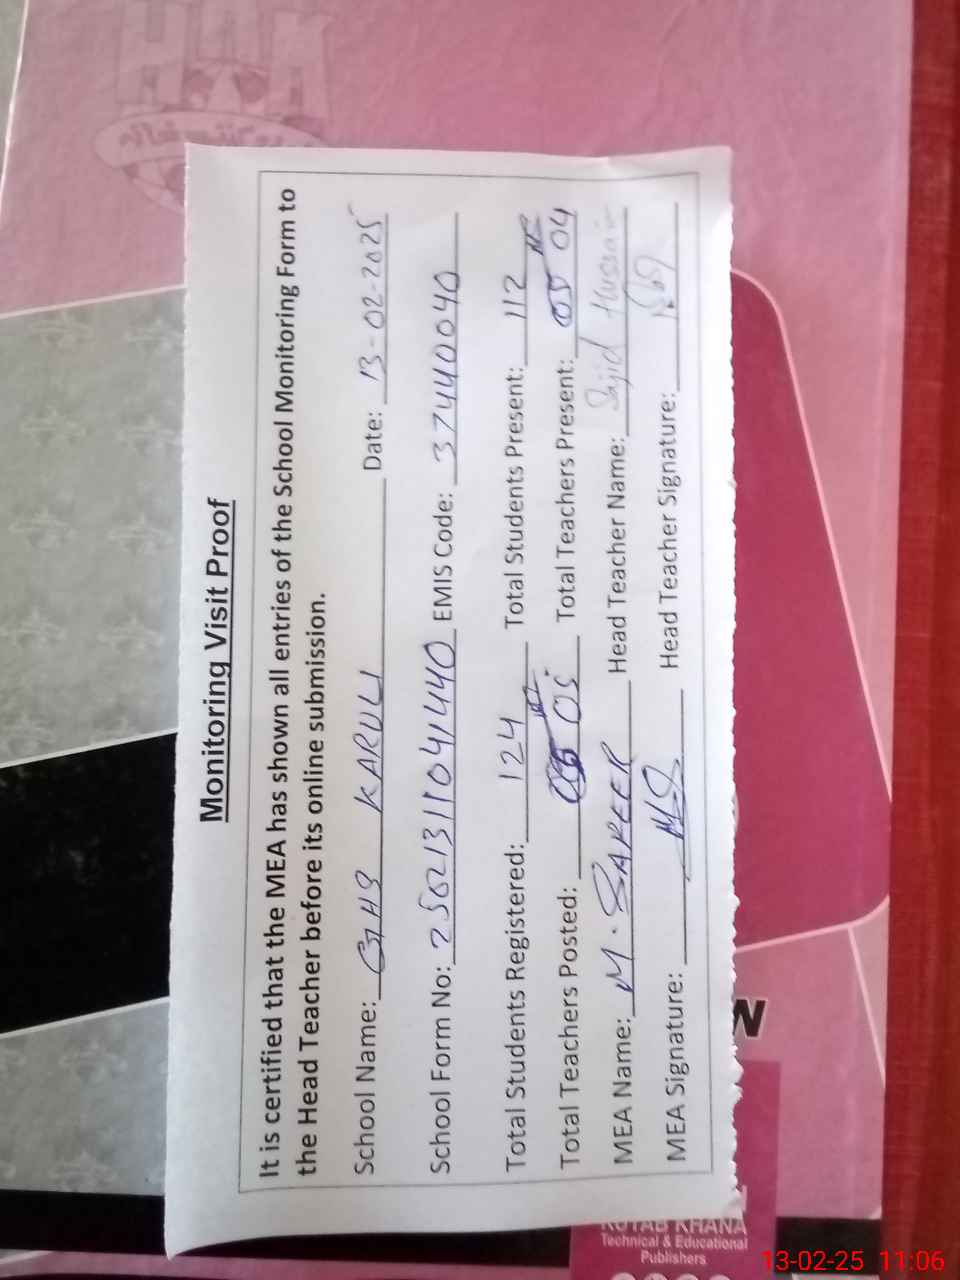 Monitoring Visit Proof
It is certified that the MEA has shown all entries of the School Monitoring Form to
the Head Teacher before its online submission.
School Name: GHS KARULI Date: 13-02-2025
School Form No: 25021311041440 EMIS Code: 37440040
Total Students Registered: 124 Total Students Present: 112
Total Teachers Posted: 05 Total Teachers Present: 04
MEA Name: M. SAREER Head Teacher Name: Sajid Hussain
MEA Signature: Head Teacher Signature:
KUTAB KHANA
Technical & Educational
Publishers
13-02-25 11:06